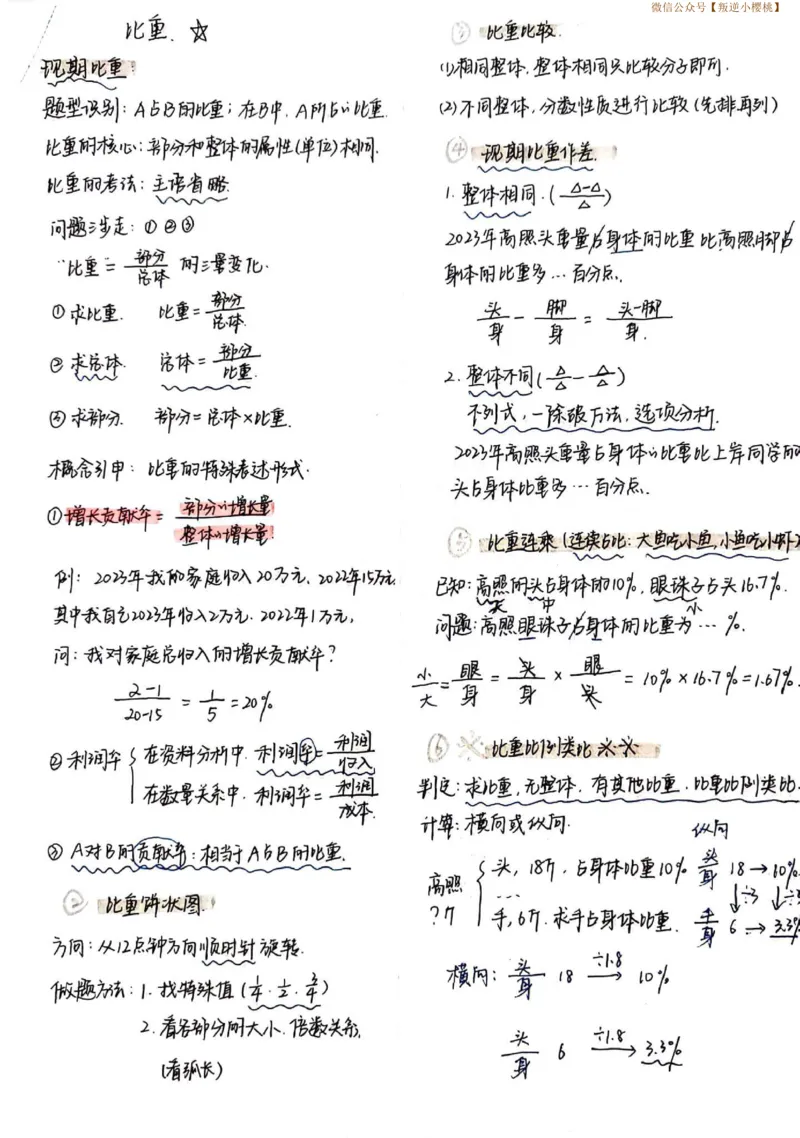 微信公众号【叛逆小樱桃】
比重 ☆
现期比重:
题型识别: A占B的比重; 在B中, A所占的比重.
比重的核心: 部分和整体的属性(单位)相同.
比重的考法: 主语省略.
问题三步走: ① ② ③
"比重 = 部分/总体 的三量变化.
① 求比重. 比重 = 部分/总体.
② 求总体. 总体 = 部分/比重.
③ 求部分. 部分 = 总体×比重.
概念引申: 比重的特殊表述形式.
① 增长贡献率 = 部分的增长量/整体的增长量.
例: 2023年我的家庭收入20万元, 2022年15万元
其中我自己2023年收入2万元. 2022年1万元,
问: 我对家庭总收入的增长贡献率?
2-1/20-15 = 1/5 = 20%
② 利润率 { 在资料分析中, 利润率 = 利润/收入
在数量关系中, 利润率 = 利润/成本.
③ A对B的贡献率: 相当于A占B的比重.
② 比重饼状图.
方向: 从12点钟方向顺时针旋转.
做题方法: 1. 找特殊值 (1/4 . 1/2 . 3/4)
2. 看各部分间大小. 倍数关系.
(看弧长)
③ 比重比较.
(1)相同整体, 整体相同只比较分子即可.
(2)不同整体, 分数性质进行比较 (先排再列)
④ 现期比重作差.
1. 整体相同. (△-△/△)
2023年高照头重量占身体的比重比高照脚占
身体的比重多…百分点.
头/身 - 脚/身 = 头-脚/身.
2. 整体不同 (△/△ - △/△)
不列式, 一除破万法, 选项分析.
2023年高照头重量占身体的比重比上岸同学的
头占身体比重多…百分点.
⑤ 比重连乘 (连续占比: 大鱼吃小鱼, 小鱼吃小虾)
已知: 高照的头占身体的10%, 眼珠子占头16.7%.
大 中 小
问题: 高照眼珠子占身体的比重为…%.
小/大 = 眼/身 = 头/身 × 眼/头 = 10%×16.7%=1.67%.
⑥ ※ 比重比例类比 ※※
判定: 求比重, 无整体, 有其他比重, 比重比例类比.
计算: 横向或纵向.
纵向
高照 ?斤 { 头, 18斤, 占身体比重10%. 头/身 18 → 10%
… ↓÷3 ↓÷3
手, 6斤. 求手占身体比重. 手/身 6 → 3.3%
横向: 头/身 18 ÷1.8 → 10%
头/身 6 ÷1.8 → 3.3%